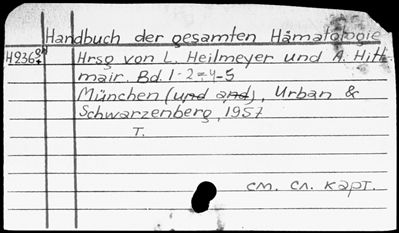 Handbuch der gesamten Hämatologie
H236 Hrsg von L. Heilmeyer und A. Hitt=
mair. Bd. 1-2=4-5
München (und and), Urban &
Schwarzenberg, 1957
T.
см. сл. карт.